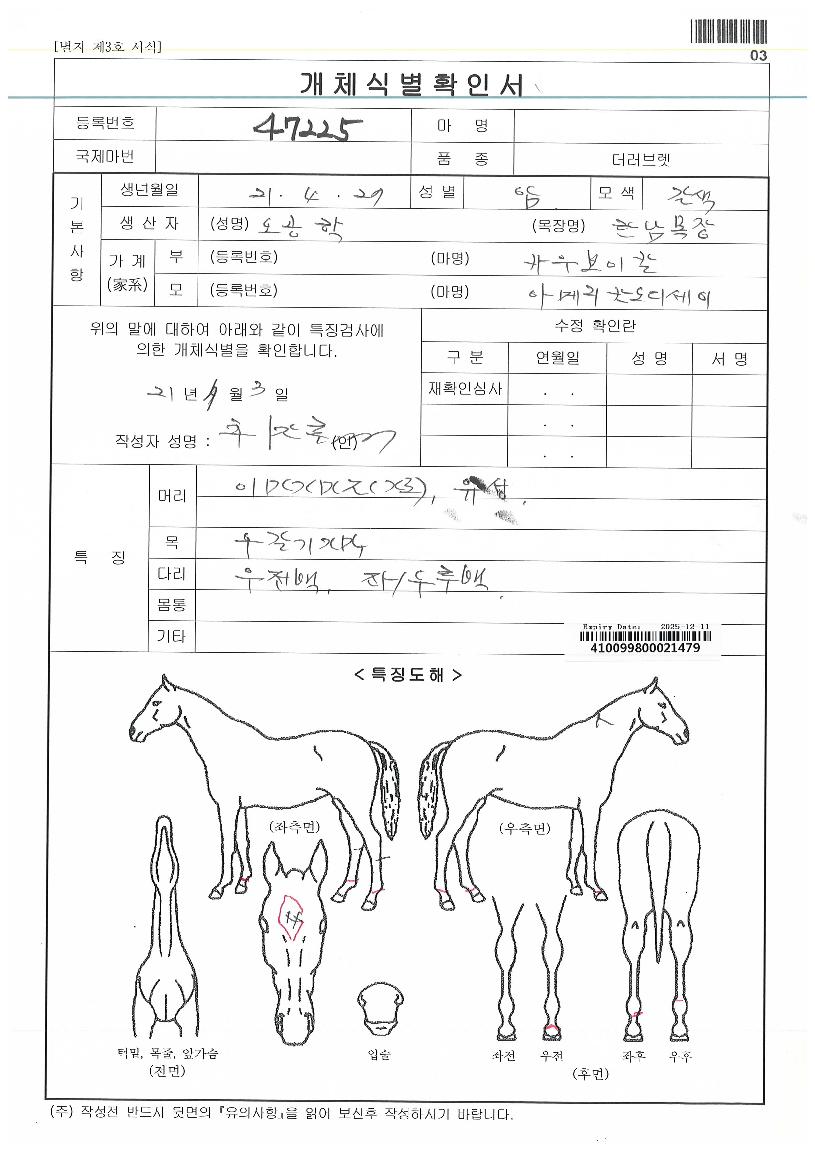 [별지 제3호 서식]
03
개체식별확인서
등록번호 47225 마 명
국제마번 품 종 더러브렛
기본사항
생년월일 21. 4. 29 성별 암 모색 갈색
생산자 (성명) 오공학 (목장명) 한남목장
가계 (家系) 부 (등록번호) (마명) 카우보이칼
모 (등록번호) (마명) 아메리칸오디세이
위의 말에 대하여 아래와 같이 특징검사에
의한 개체식별을 확인합니다.
21 년 9 월 3 일
작성자 성명 : (인)
수정 확인란
구 분 연월일 성 명 서 명
재확인심사 . .
. .
. .
특 징
머리
목
다리 우전백, 좌/우후백.
몸통
기타
Expiry Date: 2025-12-11
410099800021479
< 특징도해 >
(좌측면) (우측면)
턱밑, 목줄, 앞가슴
(전면)
입술
좌전 우전 좌후 우후
(후면)
(주) 작성전 반드시 뒷면의 『유의사항』을 읽어 보신후 작성하시기 바랍니다.